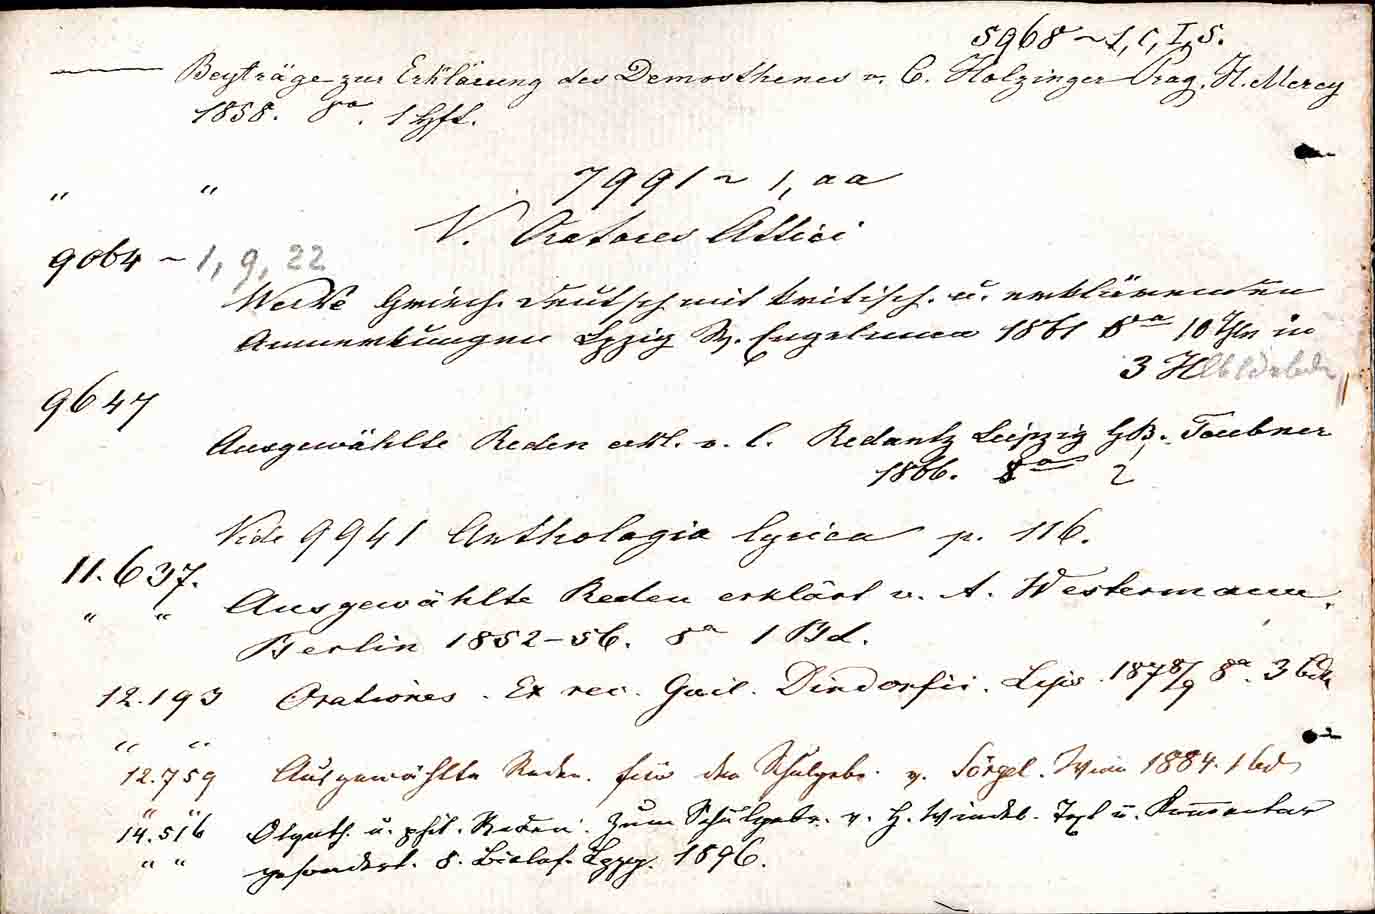 5968 ~ 1, C, I, 5.
—— Beyträge zur Erklärung des Demosthenes v. C. Holzinger Prag. H. Mercy
1858. 8°. 1 Hft.
7991 ~ 1, aa
" "
V. Oratores Attici
9064 ~ 1, 9, 22
Werke Griech. Deutsch mit kritisch. u. erklärenden
Anmerkungen Lpzig W. Engelmann 1861 8° 10 Thle in
3 Hlbldrbdn
9647
Ausgewählte Reden erkl. v. C. Redantz Leipzig G.B. Teubner
1866. 8° 2
Vide 9941 Anthologia lyrica p. 116.
11.637.
" " Ausgewählte Reden erklärt v. A. Westermann.
Berlin 1852–56. 8° 1 Bd.
12.193 Orationes. Ex rec. Guil. Dindorfii. Lips. 1878/9 8°. 3 bde
" "
12.759 Ausgewählte Reden. für den Schulgebr. v. Sörgel. Wien 1884. 1 bd
" "
14.516 Olynth. u. phil. Reden. Zum Schulgebr. v. H. Windel. Text u. Kommentar
" " gesondert. 8. Bielef. Lpzg. 1896.